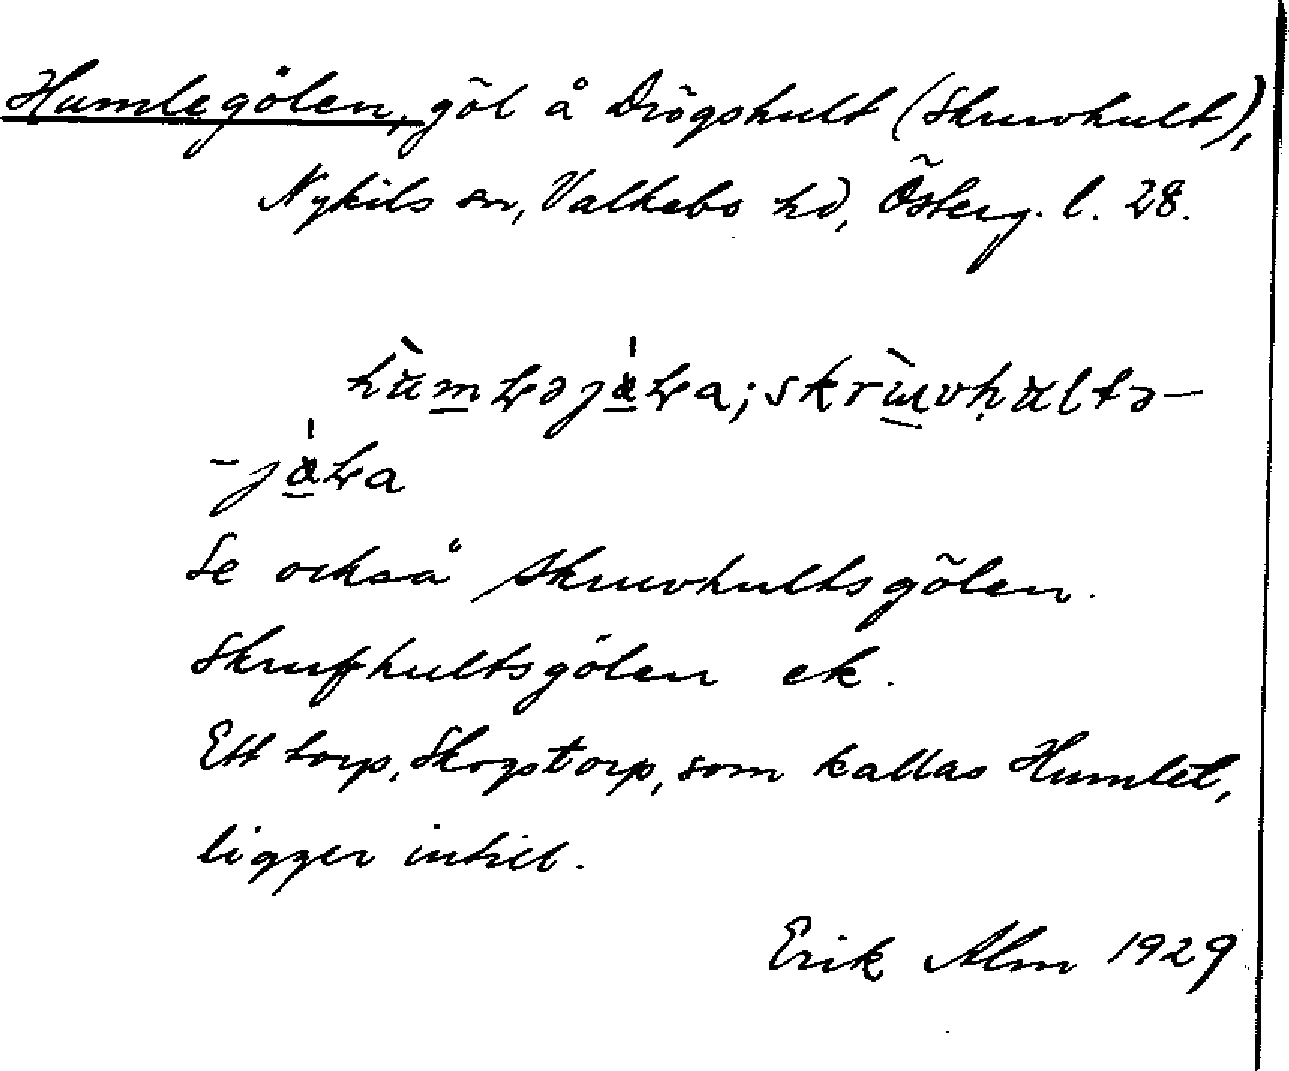 Humlegölen, göl å Drögshult (Skruvhult),
Nykils sn, Valkebo hd, Österg. l. 28.
Se också Skruvhultsgölen.
Skrufhultsgölen ek.
Ett torp, Skogstorp, som kallas Humlet,
ligger intill.
Erik Alm 1929